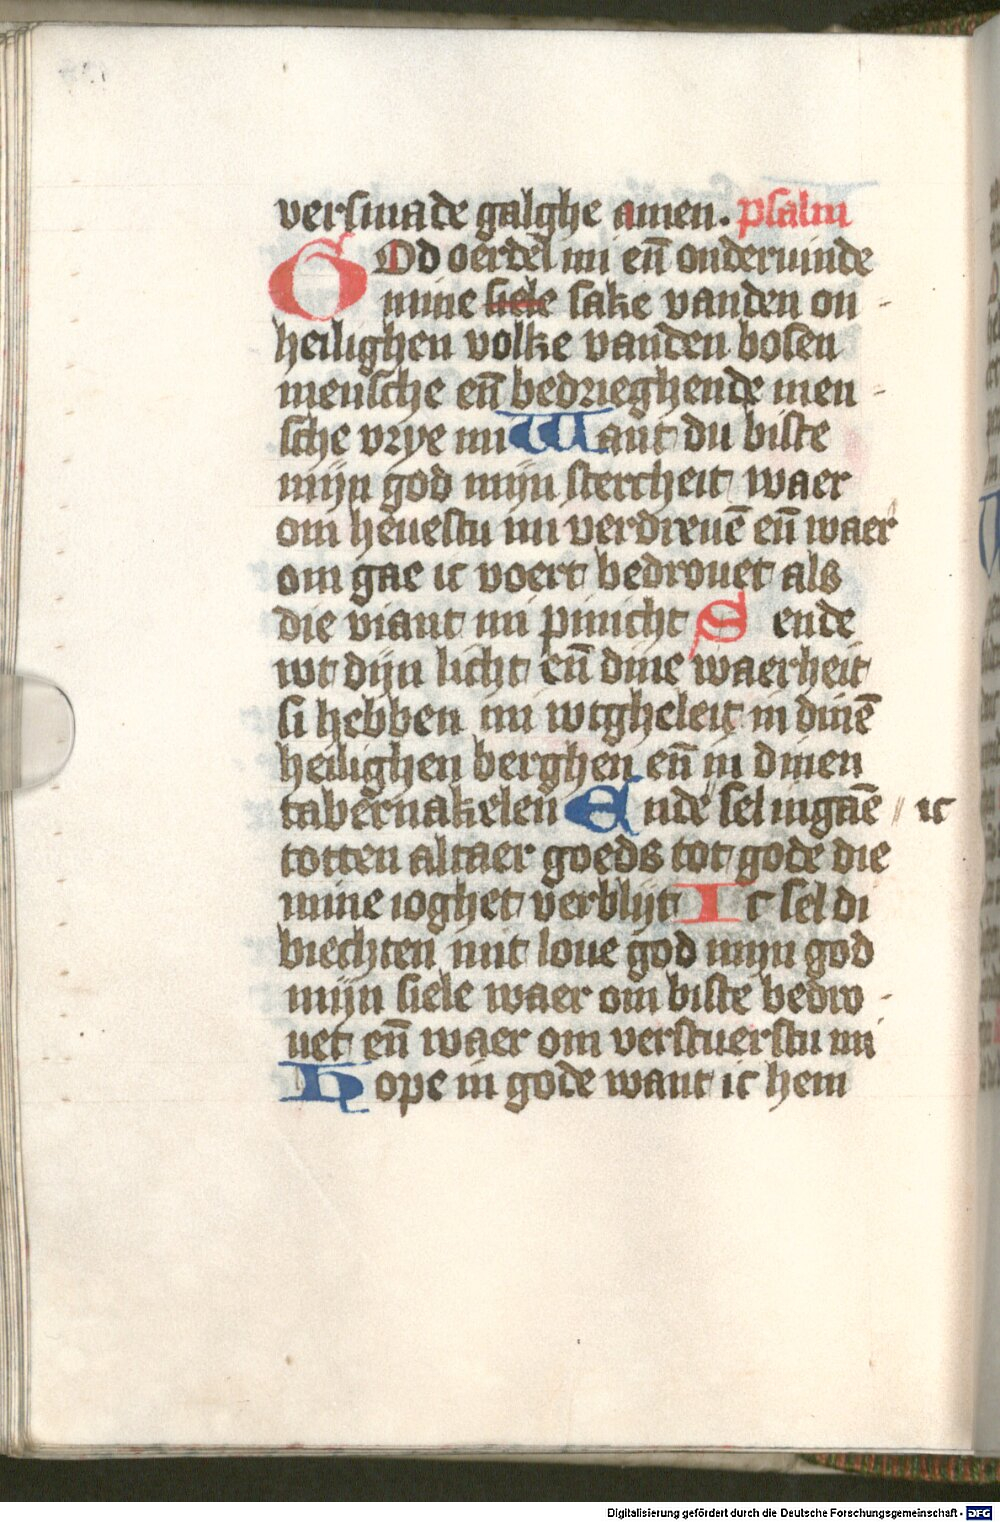 versmade galghe amen. psalm
GOd oerdel mi en̄ onderuinde
mine siele sake vanden on-
heilighen volke vanden bosen
mensche en̄ bedrieghende men-
sche vrye mi Want du biste
mijn god mijn stercheit waer
om heuestu mi verdreuē en̄ waer
om gae ic voert bedrouet als
die viant mi pinicht Sende
wt dijn licht en̄ dine waerheit
si hebben mi wtgheleit in dinē
heilighen berghen en̄ in dinen
tabernakelen Ende sel ingaē // ic
totten altaer goeds tot gode die
mine ioghet verblijt Ic sel di
biechten mit loue god mijn god
mijn siele waer om biste bedro-
uet en̄ waer om verstuerstu mi
Hope in gode want ic hem
Digitalisierung gefördert durch die Deutsche Forschungsgemeinschaft - DFG